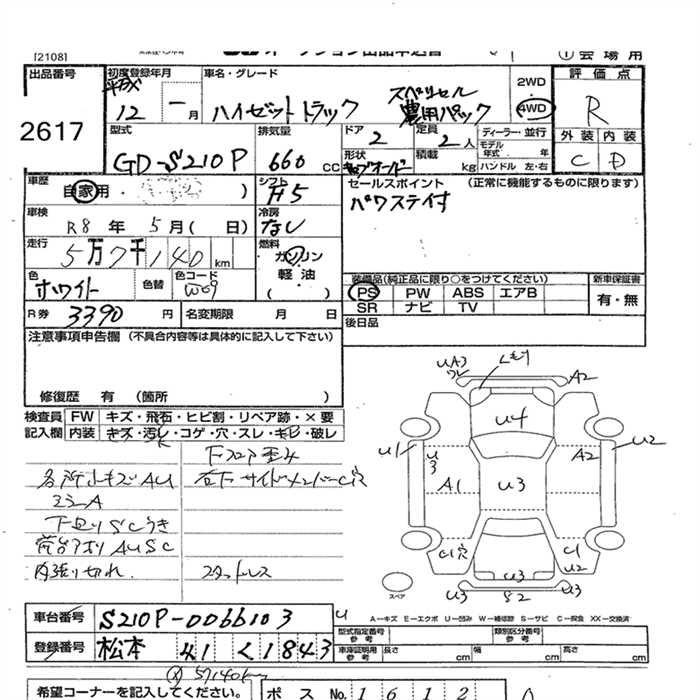 [2108]
① 会場用
出品番号
2617
初度登録年月
平成
12 年 一月
車名・グレード
ハイゼットトラック
スペリセル
農用パック
2WD
・
4WD
評価点
R
外装 内装
C D
型式
GD-S210P
排気量
660 CC
ドア
2
定員
2人
ディーラー・並行
モデル年式 . 年
ハンドル 左・右
形状
積載 kg
車歴
自家用 ( )
シフト
H5
セールスポイント (正常に機能するものに限ります)
パワステイ付
車検
R8年 5月( 日)
冷房
なし
走行
5万7千140 km
燃料
ガソリン
軽油
( )
色
ホワイト
色替
色コード
W09
装備品(純正品に限り○をつけてください)
PS PW ABS エアB
SR ナビ TV
新車保証書
有・無
R券 3390 円
名変期限 月 日
後日品
注意事項申告欄 (不具合内容等は具体的に記入して下さい)
修復歴 有 (箇所 )
検査員 FW キズ・飛石・ヒビ割・リペア跡・×要
記入欄 内装 キズ・汚れ・コゲ・穴・スレ・キB・破レ
下フロア歪み
各所小キズAU
右下サイドメンバーC穴
ミラーA
下廻りSCウキ
荷台アオリAUSC
内張り切れ
スタッドレス
UA3
ワレ
くもり
A2
U4
U1
U3
A2
U2
A1
U3
C1穴
C1
U2
U3
U3
S2
U3
スペア
U
A-キズ E-エクボ U-凹み W-補修跡 S-サビ C-腐食 XX-交換済
車台番号 S210P-0066103
登録番号 松本 41 く 1843
型式指定番号
参考
類別区分番号
参考
車庫証明用
参考
長さ cm
幅 cm
高さ cm
57140km
希望コーナーを記入してください。
ポス No. 1612